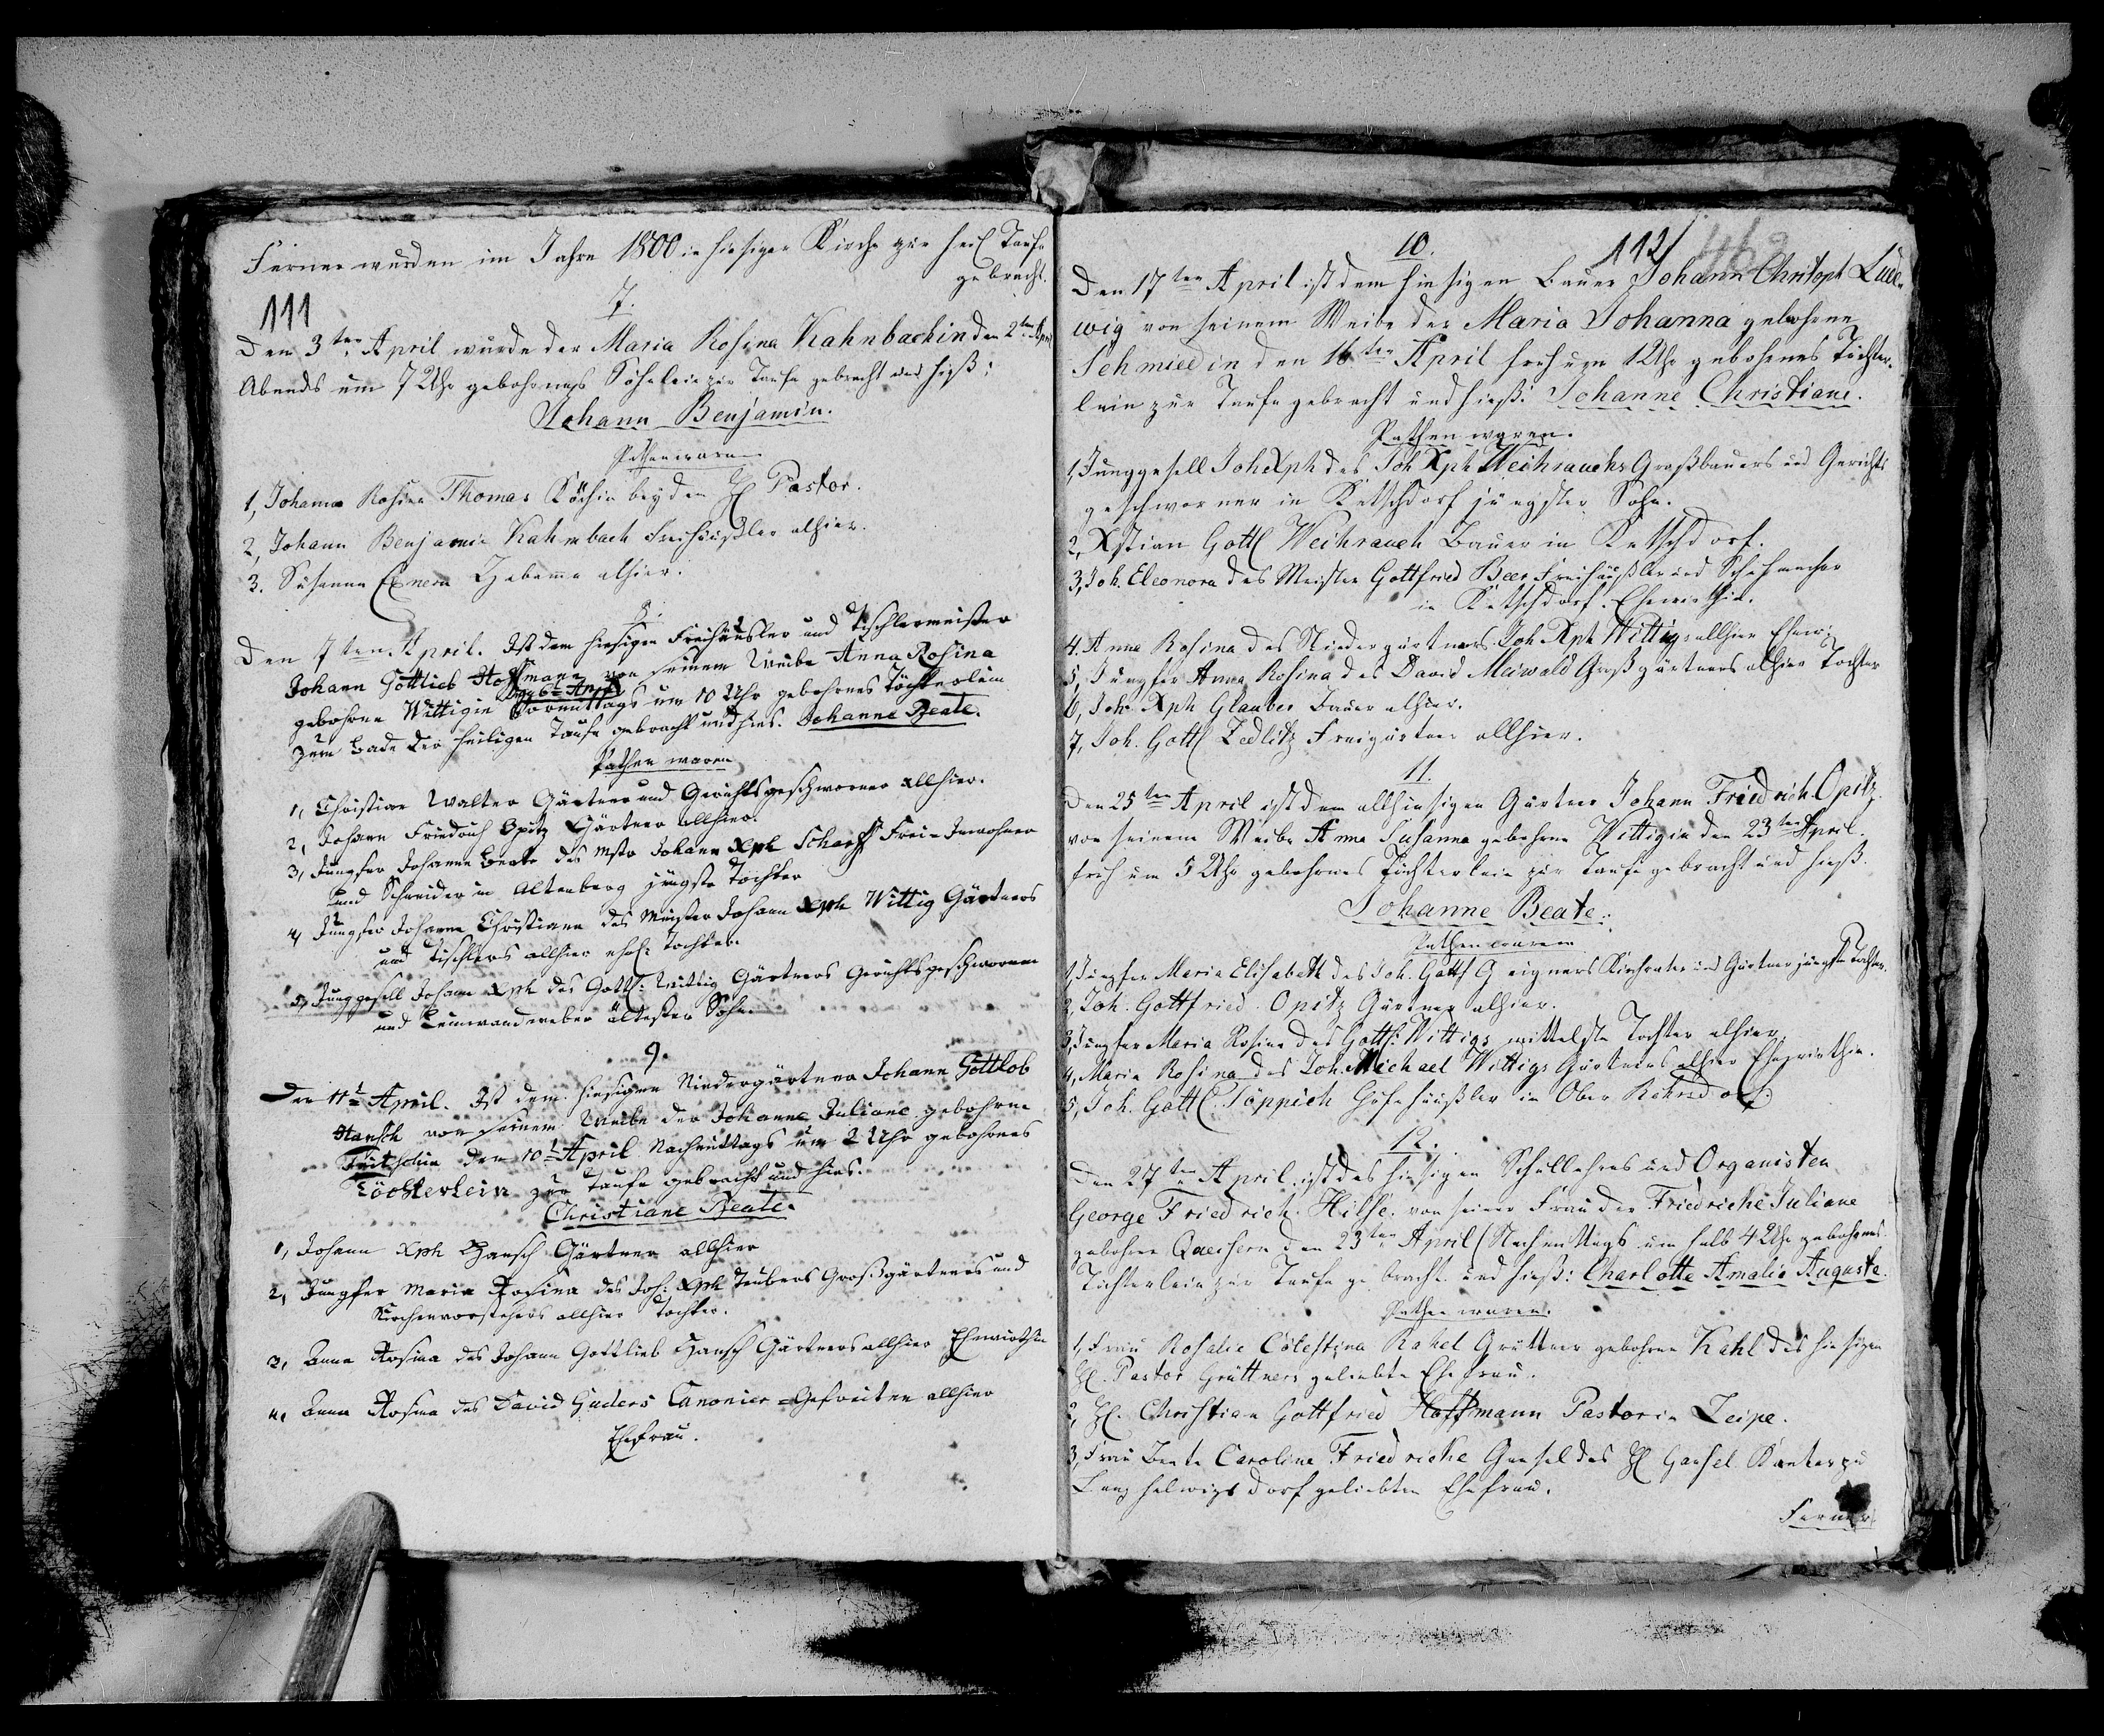 Ferner wurden im Jahre 1800 in hiesiger Kirche zur heil Taufe
gebracht.
111
7.
Den 3ten April wurde der Maria Rosina Kahnbachin den 2ten April
Abends um 7 Uhr gebohrnes Söhnlein zur Taufe gebracht und hieß:
Johann Benjamin.
Pathen waren
1, Johanna Rosina Thomas Köchin bey dem H Pastor.
2, Johann Benjamin Kahnbach Freihäußler alhier.
3. Susanna Exnern Hebamme alhier.
8.
Den 7ten April. Ist dem hiesigen Freihäusler und Tischlermeister
Johann Gottlieb Hoffmann von seinem Weibe Anna Rosina
den 6t April
gebohrne Wittigin Vormittags um 10 Uhr gebohrnes Töchterlein
zum Bade der heiligen Taufe gebracht und hies. Johanne Beate.
Pathen waren
1, Christian Walter Gärtner und Gerichtsgeschworner allhier.
2, Johann Friedrich Opitz Gärtner allhier.
3, Jungfer Johanne Beate des Mstr Johann Xph Scharff Frei-Inwohner
und Schneider in Altenberg jüngste Tochter
4, Jungfer Johanne Christiane des Meister Johann Xph Wittig Gärtners
und Tischlers allhier ehel: Tochter.
5, Junggesell Johann Xph des Gottl: Wittig Gärtners Gerichtsgeschwornen
und Leinwandweber ältester Sohn.
9.
Den 11t April. Ist dem hiesigen Niedergärtner Johann Gottlob
Hansch von seinem Weibe der Johanne Juliane gebohrne
Fritschin den 10t April Nachmittags um 2 Uhr gebohrnes
Töchterlein zur Taufe gebracht und hies.
Christiane Beate.
1, Johann Xph Hansch Gärtner allhier
2, Jungfer Maria Rosina des Joh: Xph Teubers Großgärtners und
Kirchenvorstehers allhier Tochter.
3, Anna Rosina des Johann Gottlieb Hansch Gärtners allhier Ehewirthin
4, Anna Rosina des David Guders Canonier-Gefreiten allhier
Ehefrau.
10.
112
Den 17ten April ist dem hiesigen Bauer Johann Christoph Lud-
wig von seinem Weibe der Maria Johanna gebohrne
Schmied in den 16ten April früh um 1 Uhr gebohrnes Töchter-
lein zur Taufe gebracht und hieß: Johanne Christiane.
Pathen waren.
1, Junggesell Joh Xph des Joh Xph Weihrauchs Großbauers und Gerichts
geschworner in Ketschdorf jüngster Sohn.
2, Xstian Gottl Weihrauch Bauer in Ketschdorf.
3, Joh. Eleonora des Meister Gottfried Beer Freihäußler und Schuhmacher
in Ketschdorf. Ehewirthin.
4. Anna Rosina des Niedergärtners Joh Xph Wittigs allhier Ehew:
5, Jungfer Anna Rosina des David Meiwald Großgärtners alhier Tochter
6, Joh Xph Glauber Bauer alhier.
7, Joh. Gottl Zedlitz Freigärtner allhier.
11.
Den 25ten April ist dem allhiesigen Gärtner Johann Friedrich Opitz
von seinem Weibe Anna Susanna gebohrne Wittigin den 23ten April.
früh um 5 Uhr gebohrnes Töchterlein zur Taufe gebracht und hieß.
Johanne Beate.
Pathen waren
1, Jungfer Maria Elisabeth des Joh. Gottf Geigners Kirchvater und Gärtner jüngste Tochter.
2, Joh. Gottfried Opitz Gärtner alhier.
3, Jungfer Maria Rosina des Gottf: Wittigs mittelste Tochter alhier
4, Maria Rosina des Joh. Michael Wittigs Gärtners alhier Ehewirthin.
5, Joh. Gottl. Töppich Hofehäußler in Ober Rohrsdorf.
12.
Den 27ten April ist des hiesigen Schullehres und Organisten
George Friedrich Hilse. von seiner Frau der Friedricke Juliane
gebohrne den 23ten April (Nachmittags um halb 4 Uhr gebohrnes
Töchterlein zur Taufe gebracht und hieß: Charlotte Amalie Auguste.
Pathen waren.
1, Frau Rosalie Cölestina Rahel Grüttner gebohrne Kahl des hiesigen
H. Pastor Grüttners geliebte Ehefrau.
2, H. Christian Gottfried Hoffmann Pastor in Leipe.
3, Frau Beate Caroline Friedricke Gansel des H Gansel Kantor zu
Langhelwigsdorf geliebten Ehefrau.
Ferner